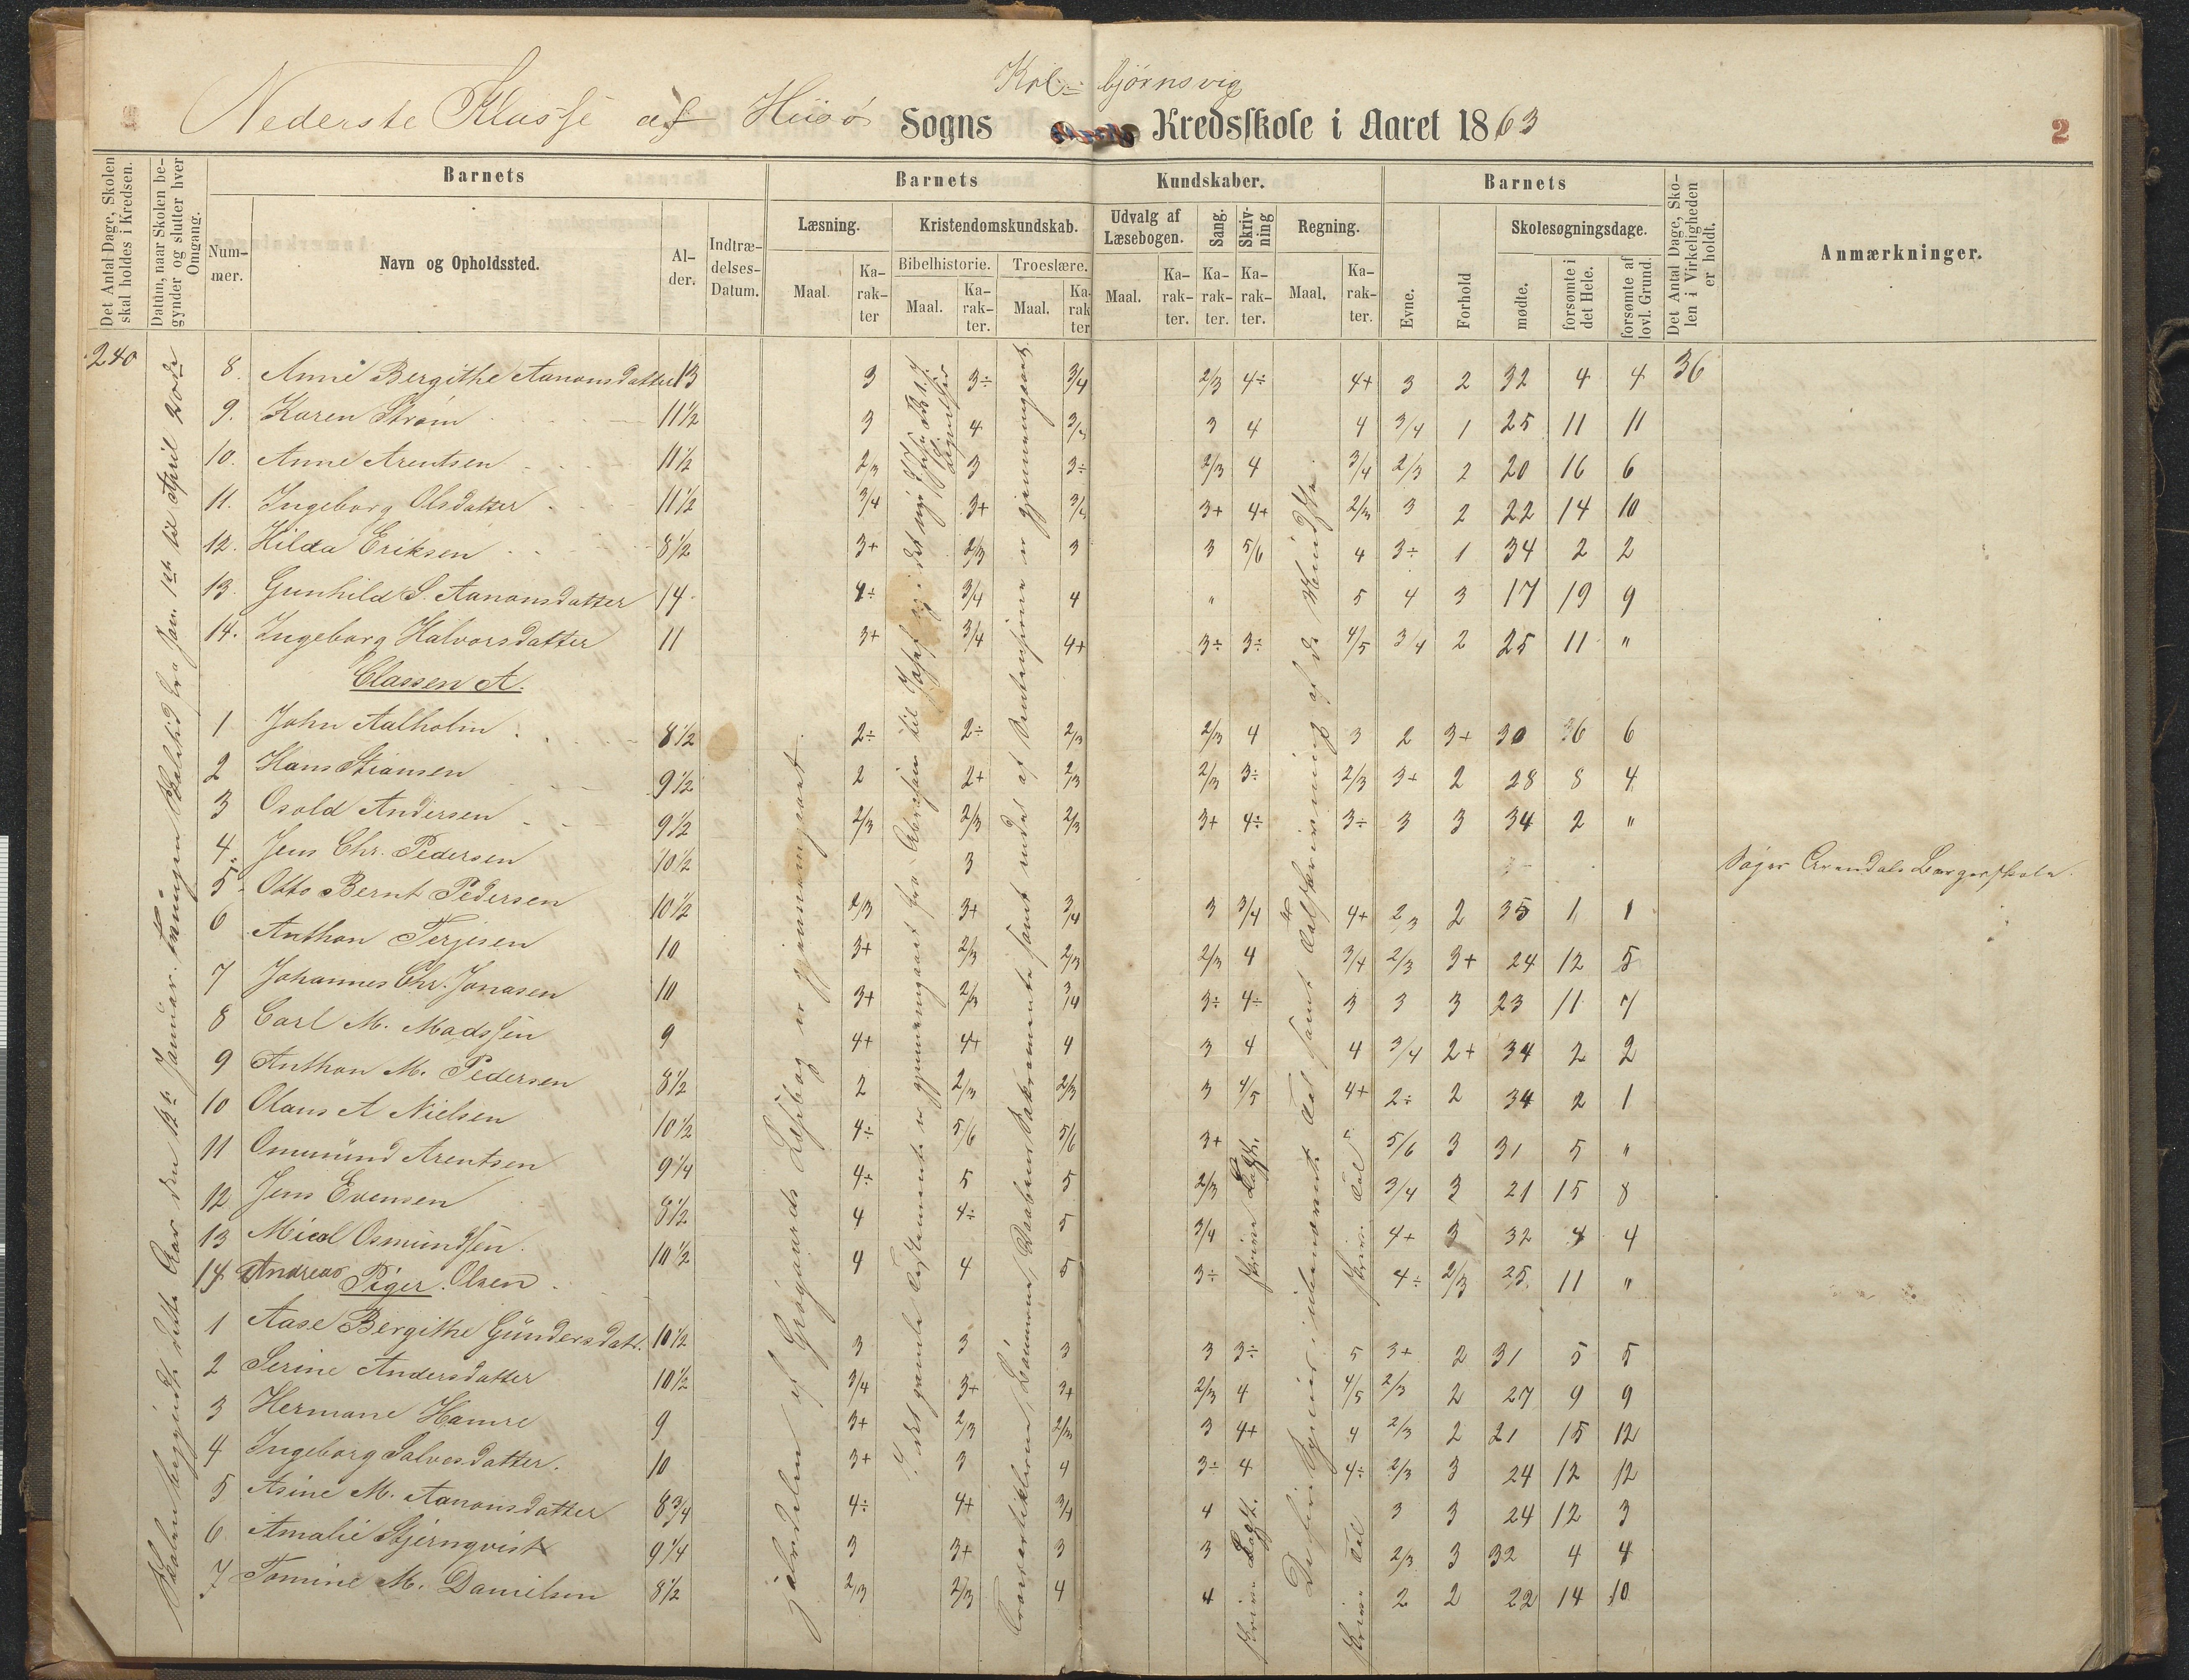 Kol- bjørnsvig
Nederste Klasse af Hiisø Sogns Kredsskole i Aaret 1863
2
Det Antal Dage, Skolen skal holdes i Kredsen.
Datum, naar Skolen begynder og slutter hver Omgang.
Barnets
Barnets Kundskaber.
Barnets
Det Antal Dage, Skolen i Virkeligheden er holdt.
Anmærkninger.
Nummer.
Navn og Opholdssted.
Alder.
Indtrædelses-Datum.
Læsning.
Kristendomskundskab.
Udvalg af Læsebogen.
Sang.
Skrivning
Regning.
Evne.
Forhold
Skolesøgningsdage.
Bibelhistorie.
Troeslære.
Maal. Karakter
Maal. Karakter.
Maal. Karakter
Maal. Karakter.
Karakter.
Karakter.
Maal. Karakter.
mødte.
forsømte i det Hele.
forsømte af lovl. Grund.
240
8. Anne Bergithe Aanonsdatter 13 3 3÷ 3/4 2/3 4÷ 4+ 3 2 32 4 4 36
9. Karen Strøm 11½ 3 4 3/4 3 4 4 3/4 1 25 11 11
10. Anne Arentsen 11½ 2/3 3 3÷ 2/3 4 3/4 2/3 2 20 16 6
11. Ingeborg Olsdatter 11½ 3/4 3+ 3/4 3+ 4+ 2/3 3 2 22 14 10
12. Hilda Eriksen 8½ 3+ 2/3 3 3 5/6 4 3÷ 1 34 2 2
13. Gunhild S. Aanonsdatter 14 4÷ 3/4 4 " 5 4 3 17 19 9
14. Ingeborg Halvorsdatter 11 3+ 3/4 4+ 3÷ 3÷ 4/5 3/4 2 25 11 "
Classen A.
1 John Aalholm 8½ 2÷ 2÷ 2/3 2/3 4 3 2 3+ 30 36 6
2 Hans Stiansen 9½ 2 2+ 2/3 2/3 3÷ 2/3 3+ 2 28 8 4
3 Osold Andersen 9½ 2/3 2/3 2/3 3+ 4÷ 3÷ 3 3 34 2 "
4. Jens Chr. Pedersen 10½ 3 Søger Arendals Borgerskole.
5. Otto Bernt Pedersen 10½ 2/3 3+ 3/4 3 3/4 4+ 2/3 2 35 1 1
6 Anthon Terjesen 10 3+ 2/3 2/3 2/3 4 3/4 2/3 3+ 24 12 5
7 Johannes Chr. Jonasen 10 3+ 2/3 3/4 3÷ 4÷ 3 3 3 23 11 7
8 Carl M. Madssen 9 4+ 4+ 4 3 4 4 3/4 2+ 34 2 2
9 Anthon M. Pedersen 8½ 2 2/3 2/3 3 4/5 4+ 2÷ 2 34 2 1
10 Olaus A Nielsen 10½ 4÷ 5/6 5/6 3+ 5/6 3 31 5 "
11 Omund Arentsen 9¼ 4÷ 5 5 2/3 3/4 3 21 15 8
12 Jens Evensen 8½ 4 4÷ 5 3/4 4+ 3 32 4 4
13 Micol Osmundsen. 10½ 4 4 5 3÷ 4÷ 2/3 25 11 "
14 Andreas Olsen
Piger.
1 Aase Bergithe Gundersdatr. 10½ 3 3 3 3 3÷ 5 3+ 2 31 5 5
2 Serine Andersdatter 10½ 3/4 3+ 3+ 2/3 4 4/5 2/3 2 27 9 9
3 Hermane Hamre 9 3+ 2/3 2/3 3 4+ 4 2/3 2 21 15 12
4 Ingeborg Salvesdatter. 10 3+ 3 4 3÷ 4 4÷ 2/3 3 24 12 12
5 Asine M. Aanonsdatter 8¾ 4÷ 4+ 3/4 4 3 3 24 12 3
6 Amalie Stjernqvist 9¼ 3 3+ 3 3 2/3 3 32 4 4
7 Tomine M. Danielsen 8½ 2/3 2/3 4 4 2 2 22 14 10